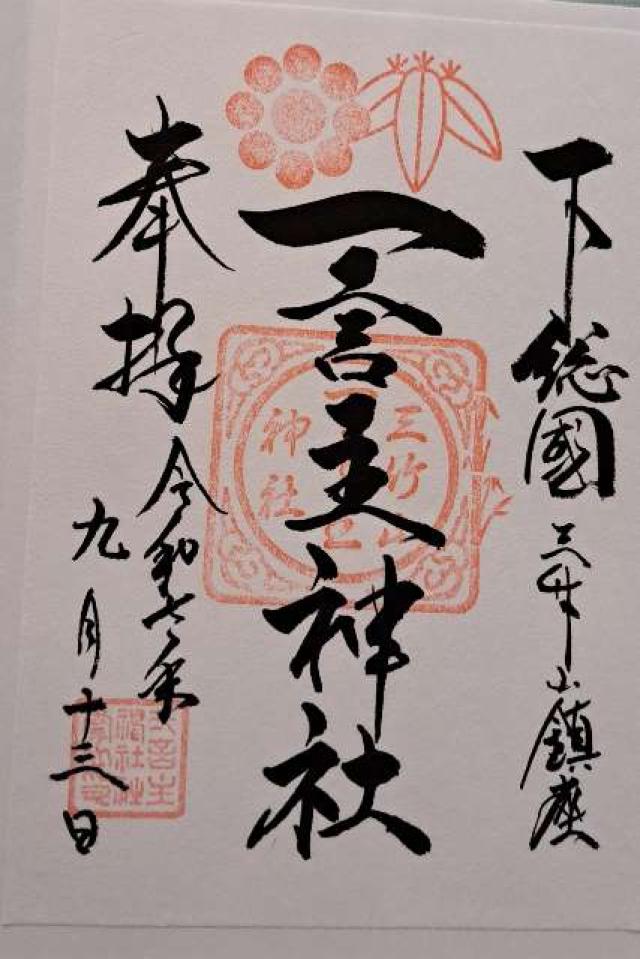 下総國三竹山鎮座
一言主神社
奉拝
令和六年
九月十三日
三竹山
神社